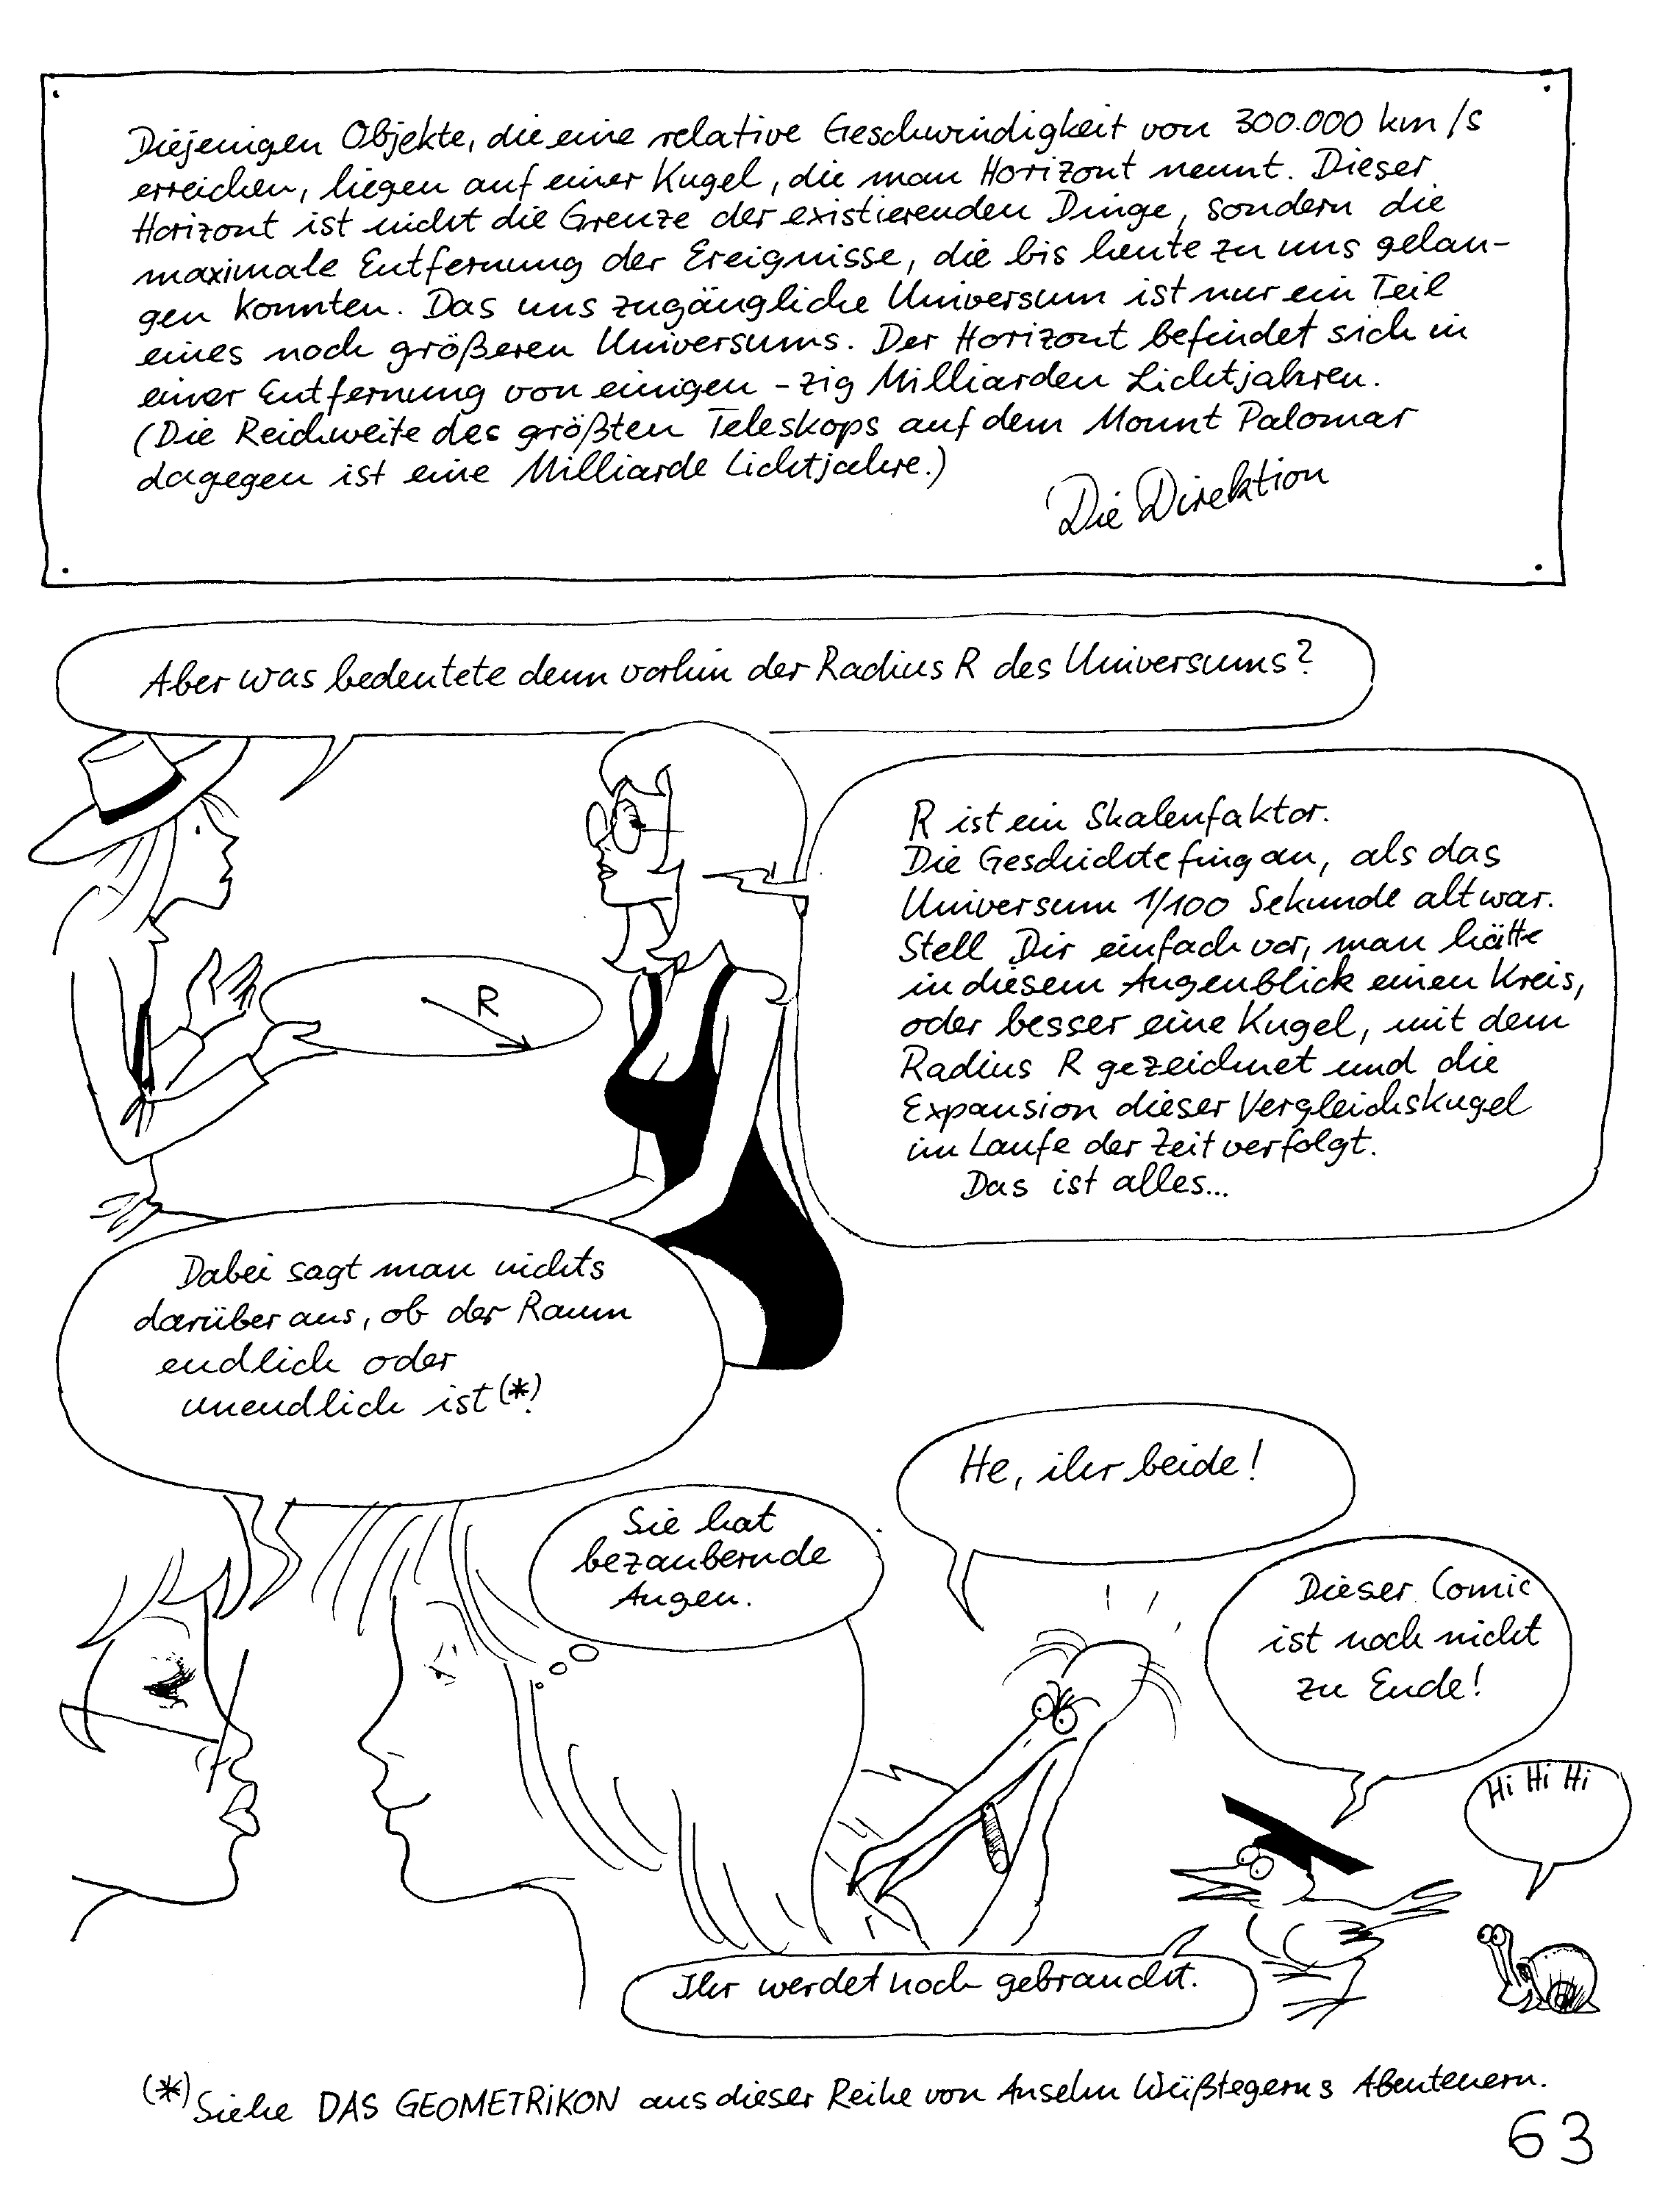 Diejenigen Objekte, die eine relative Geschwindigkeit von 300.000 km/s
erreichen, liegen auf einer Kugel, die man Horizont nennt. Dieser
Horizont ist nicht die Grenze der existierenden Dinge, sondern die
maximale Entfernung der Ereignisse, die bis heute zu uns gelan-
gen konnten. Das uns zugängliche Universum ist nur ein Teil
eines noch größeren Universums. Der Horizont befindet sich in
einer Entfernung von einigen -zig Milliarden Lichtjahren.
(Die Reichweite des größten Teleskops auf dem Mount Palomar
dagegen ist eine Milliarde Lichtjahre.)
Die Direktion
Aber was bedeutete denn vorhin der Radius R des Universums?
R
R ist ein Skalenfaktor.
Die Geschichte fing an, als das
Universum 1/100 Sekunde alt war.
Stell Dir einfach vor, man hätte
in diesem Augenblick einen Kreis,
oder besser eine Kugel, mit dem
Radius R gezeichnet und die
Expansion dieser Vergleichskugel
im Laufe der Zeit verfolgt.
Das ist alles...
Dabei sagt man nichts
darüber aus, ob der Raum
endlich oder
unendlich ist(*)?
Sie hat
bezaubernde
Augen.
He, ihr beide!
Dieser Comic
ist noch nicht
zu Ende!
Hi Hi Hi
Ihr werdet noch gebraucht.
(*) Siehe DAS GEOMETRiKON aus dieser Reihe von Anselm Wüßtegerns Abenteuern.
63